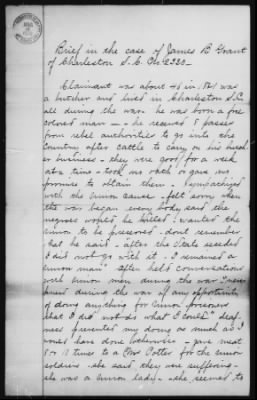 Brief in the case of James B Grant
of Charleston S. C. No 2320 —
Claimant was about 45 in 1861 was
a butcher and lived in Charleston S C
all during the war. he was born a free
colored man — he received passes
from rebel authorities to go into the
Country after cattle to carry on his butch
er business — they were good for a week
at a time — took no oath or gave no
promise to obtain them. Sympathized
with the Union cause — felt sorry when
the war began every body said the
negroes would be wanted the
Union to be preserved — dont remember
what he said — after the State seceded
I did not go with it — I remained a
Union man often held conversations
with Union men during the war I never
during the war of any opportunity
of doing anything for Union prisoners
that I did not do what I could
prevented my doing as much as I
would have done otherwise — gave meat
times to a Mrs Potter for the Union
soldiers she said they were suffering —
she was a Union lady — she seemed to